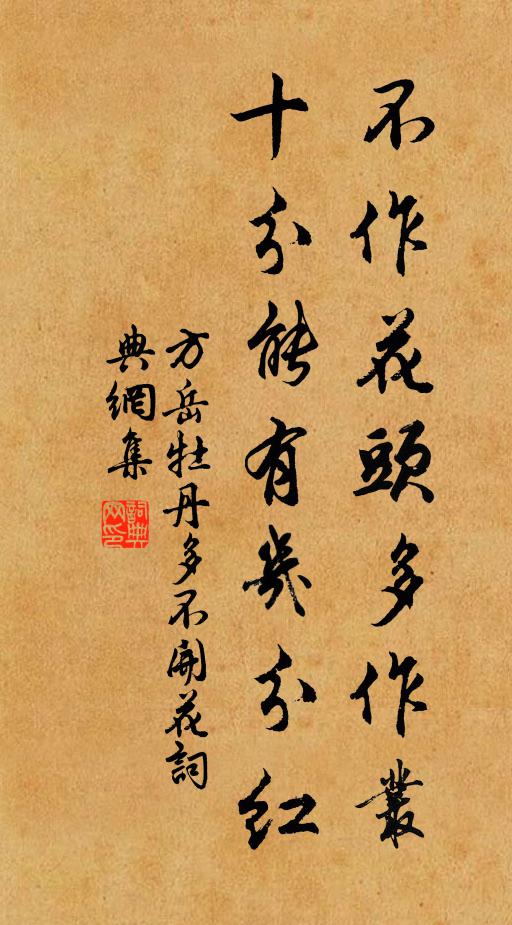 不作花頭多作叢
十分能有幾分紅
方岳牡丹多不開花詞
典網集
詞典
网印